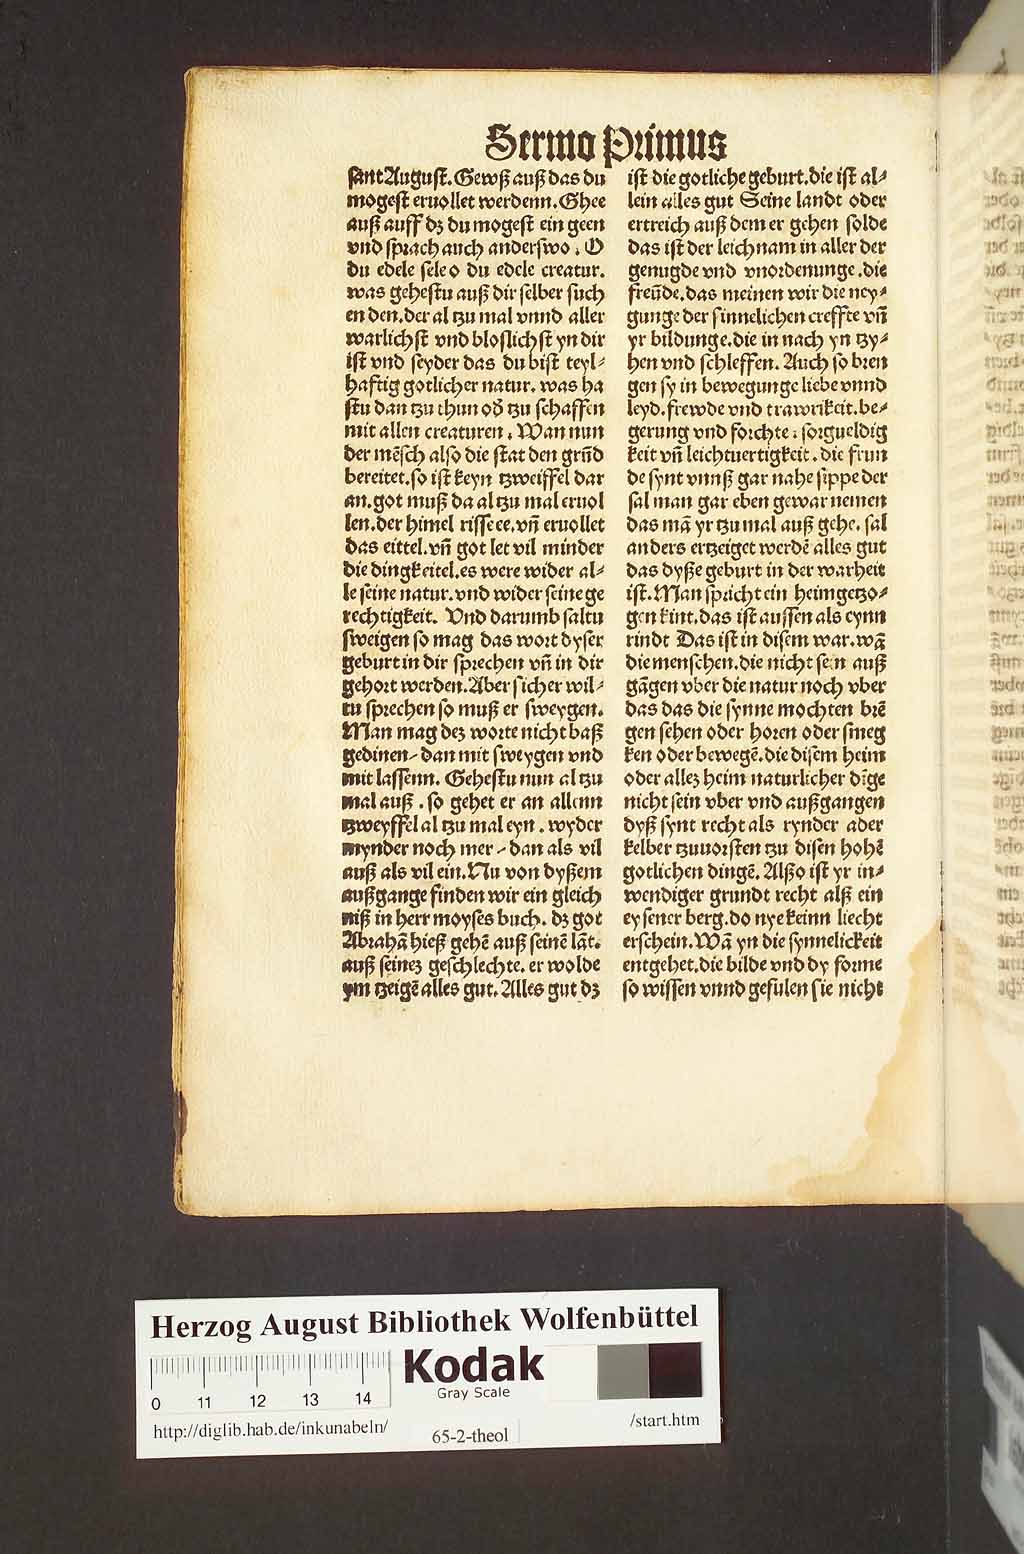 Sermo Primus
sant August. Gewß auß das du
mogest eruollet werdenn. Ghee
auß auff dʒ du mogest ein geen
vnd sprach auch anderswo. O
du edele sele o du edele creatur.
was gehestu auß dir selber such
en den. der al tzu mal vnnd aller
warlichst vnd bloslichst yn dir
ist vnd seyder das du bist teyl⸗
haftig gotlicher natur. was ha
stu dan tzu thun od̓ tzu schaffen
mit allen creaturen. Wan nun
der mēsch also die stat den grūd
bereitet. so ist keyn tzweiffel dar
an. got muß da al tzu mal eruol
len. der himel risse ee. vn̄ eruollet
das eittel. vn̄ got let vil minder
die dingk eitel. es were wider al⸗
le seine natur. vnd wider seine ge
rechtigkeit. Vnd darumb saltu
sweigen so mag das wort dyser
geburt in dir sprechen vn̄ in dir
gehort werden. Aber sicher wil⸗
tu sprechen so muß er sweygen.
Man mag deʒ worte nicht baß
gedinen / dan mit sweygen vnd
mit lassenn. Gehestu nun al tzu
mal auß. so gehet er an allenn
tzweyffel al tzu mal eyn. wyder
mynder noch mer / dan als vil
auß als vil ein. Nu von dyßem
außgange finden wir ein gleich
niß in herr moyses buch. dʒ got
Abrahā hieß gehē auß seinē lāt.
auß seineʒ geschlechte. er wolde
ym tzeigē alles gut. Alles gut dʒ
ist die gotliche geburt. die ist al⸗
lein alles gut Seine landt oder
ertreich auß dem er gehen solde
das ist der leichnam in aller der
genugde vnd vnordenunge. die
freūde. das meinen wir die ney⸗
gunge der sinnelichen creffte vn̄
yr bildunge. die in nach yn tzy⸗
hen vnd schleffen. Auch so bren
gen sy in bewegunge liebe vnnd
leyd. frewde vnd trawrikeit. be⸗
gerung vnd forchte. sorgueldig
keit vn̄ leichtuertigkeit. die frun
de synt vnnß gar nahe sippe der
sal man gar eben gewar nemen
das mā yr tzu mal auß gehe. sal
anders ertzeiget werdē alles gut
das dyße geburt in der warheit
ist. Man spricht ein heimgetzo⸗
gen kint. das ist aussen als eynn
rindt Das ist in disem war. wā
die menschen. die nicht sein auß
gāgen vber die natur noch vber
das das die synne mochten brē
gen sehen oder horen oder smeg
ken oder bewegē. die disem heim
oder alleʒ heim naturlicher dīge
nicht sein vber vnd außgangen
dyß synt recht als rynder ader
kelber tzuuorsten tzu disen hohē
gotlichen dingē. Alßo ist yr in⸗
wendiger grundt recht alß ein
eysener berg. do nye keinn liecht
erschein. Wā yn die synnelickeit
entgehet. die bilde vnd dy forme
so wissen vnnd gefulen sie nicht
Herzog August Bibliothek Wolfenbüttel
Kodak
Gray Scale
0 11 12 13 14
http://diglib.hab.de/inkunabeln/
65-2-theol
/start.htm